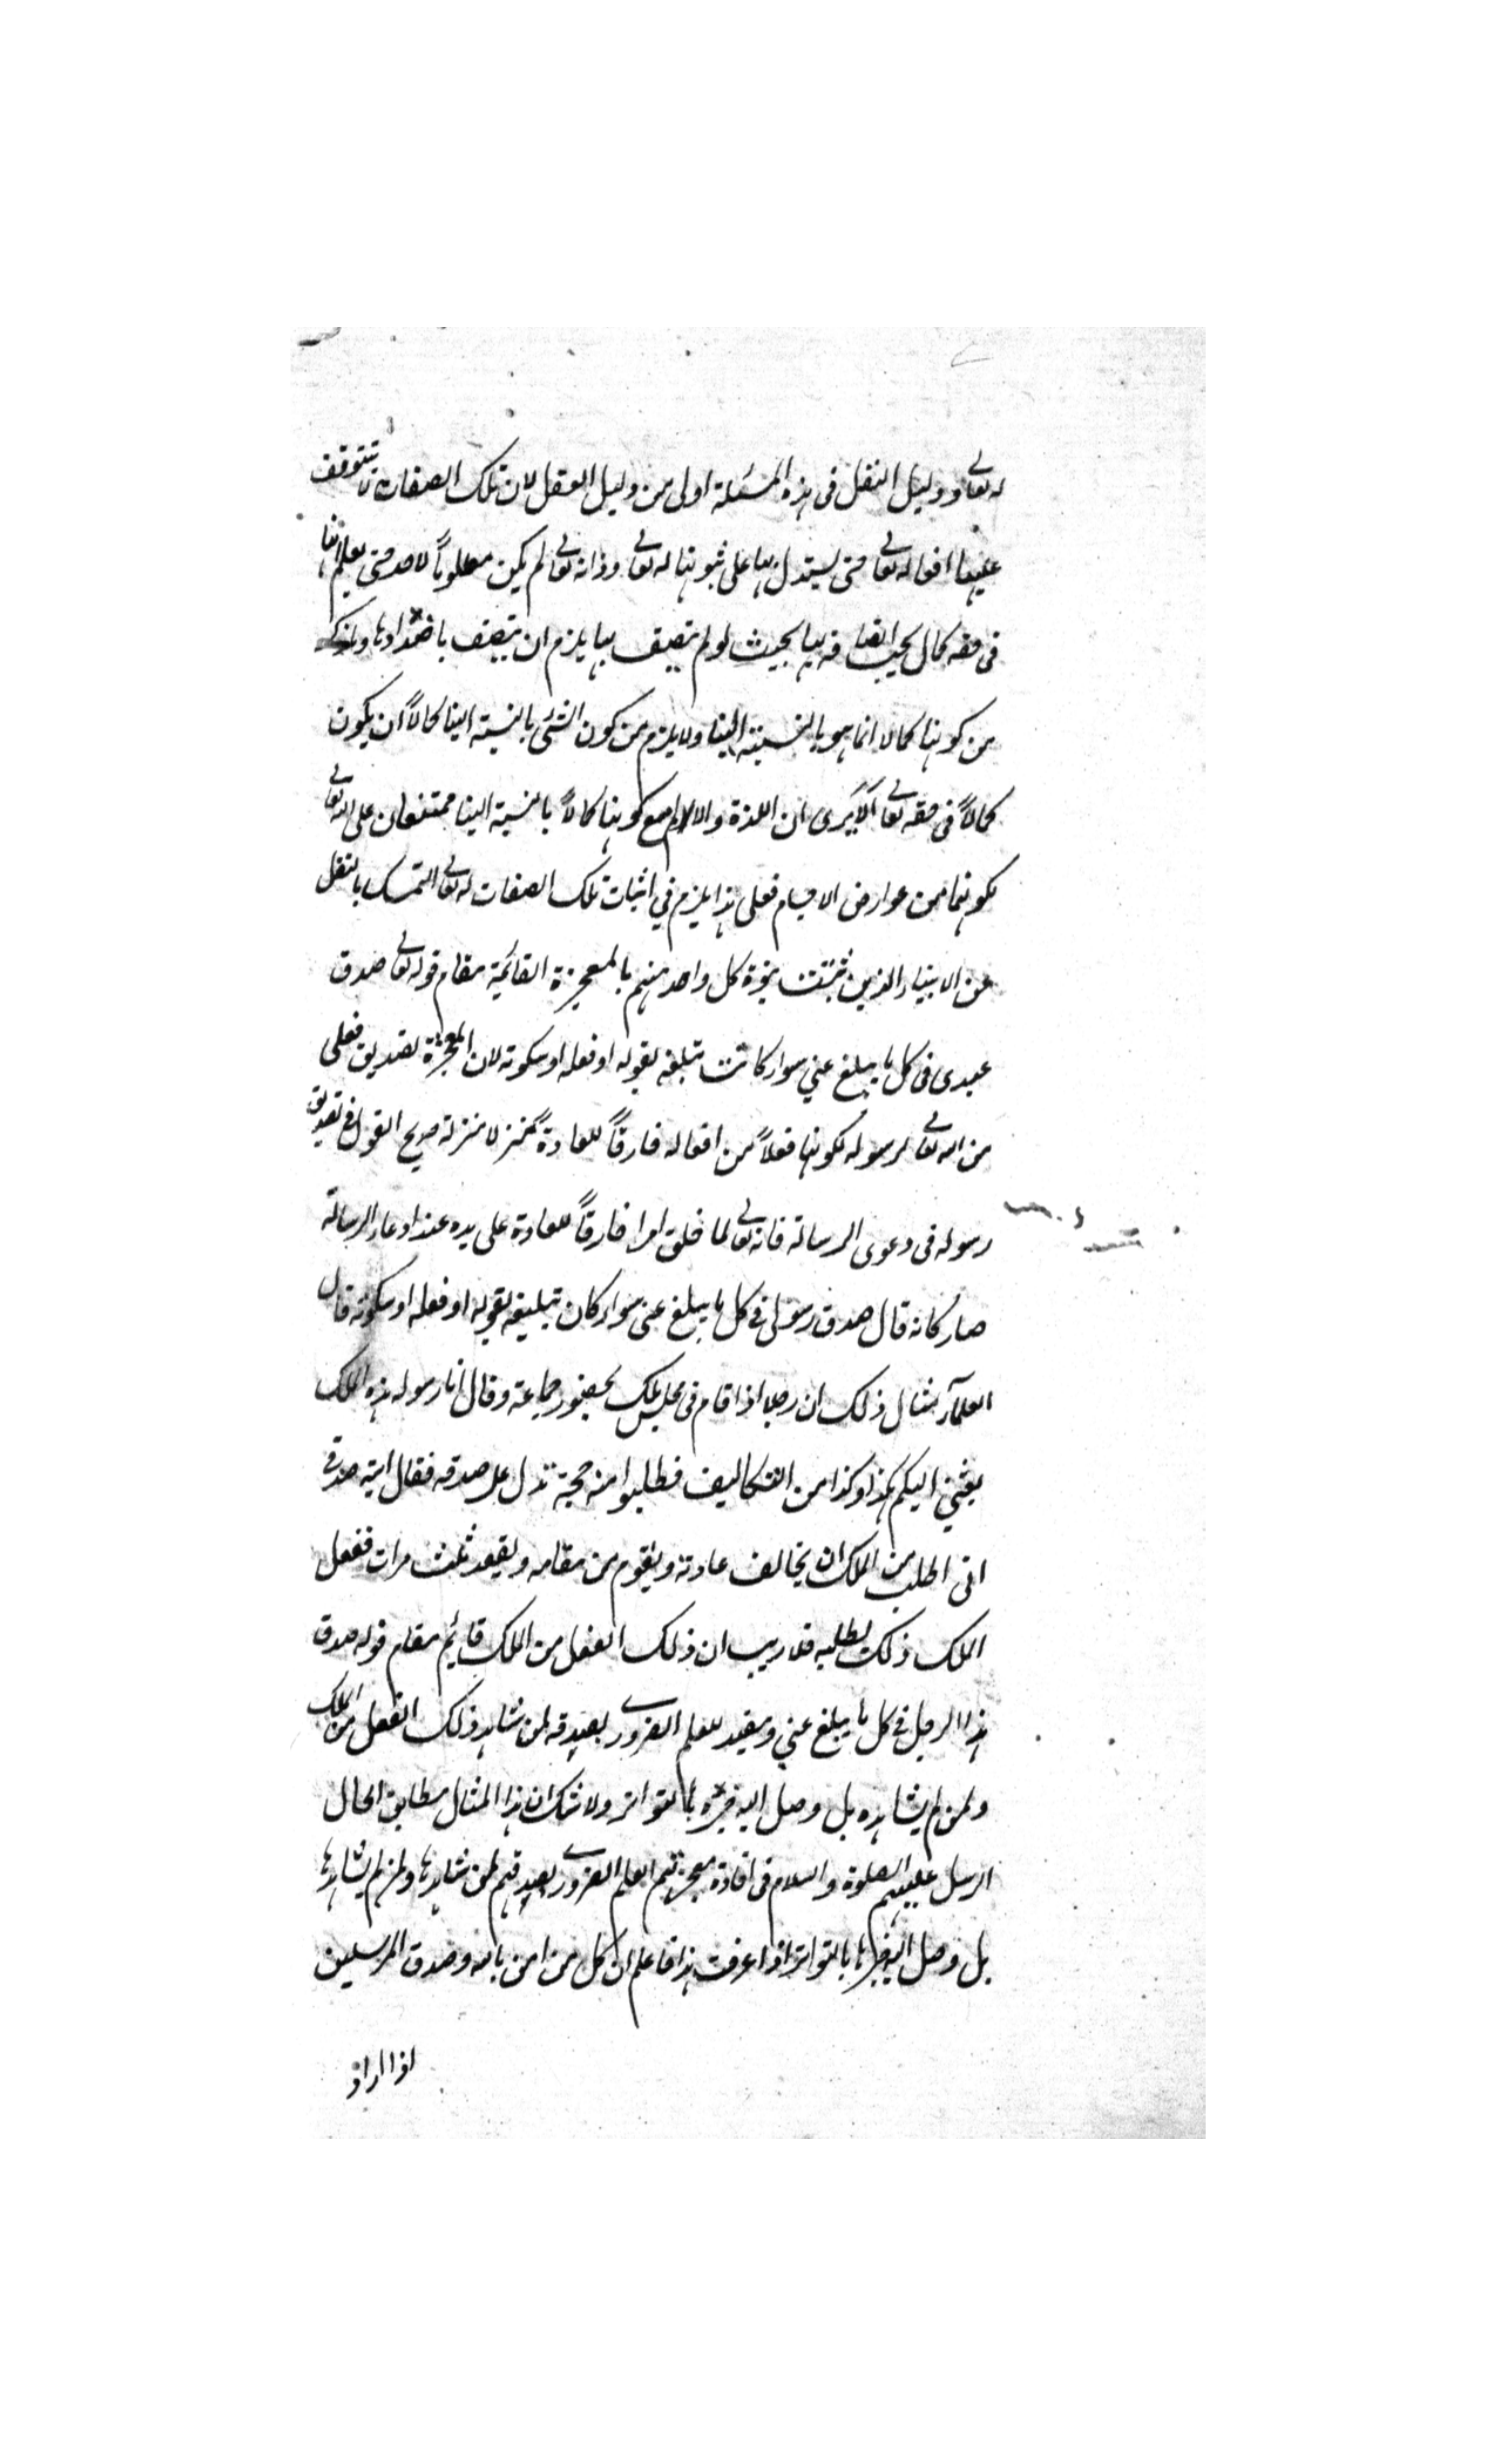 له تعالى ودليل النقل فى هذه المسئلة اولى من دليل العقل لان تلك الصفات لا تتوقف
عليها افعاله تعالى حتى يستدل بها على ثبوتها له تعالى وذاته تعالى لم يكن معلوماً لاحد حتى يعلم انها
فى حقه كمال يجب اتصافه بها بحيث لو لم يتصف بها يلزم ان يتصف باضدادها وما ذكر
من كونها كمالا انما هو بالنسبة الينا ولا يلزم من كون الشئ بالنسبة الينا كمالاً ان يكون
كمالاً فى حقه تعالى الا يرى ان اللذة والالم مع كونها كمالاً بالنسبة الينا ممتنعان على الله تعالى
لكونهما من عوارض الاجسام فعلى هذا يلزم في اثبات تلك الصفات له تعالى التمسك بالنقل
عن الانبياء الذين ثبتت نبوة كل واحد منهم بالمعجزة القائمة مقام قوله تعالى صدق
عبدى فى كل ما يبلغ عني سواء كانت تبلغه بقوله او فعله او سكوته لان المعجزة تصديق فعلى
من الله تعالى لرسوله لكونها فعلاً من افعاله خارقاً للعادة منزلا منزلة صريح القول فى تصديق
رسوله فى دعوى الرسالة فانه تعالى لما خلق امرا خارقاً للعادة على يده عند ادعاء الرسالة
صار كانه قال صدق رسولى فى كل ما يبلغ عنى سواء كان تبليغه بقوله او فعله او سكوته قال
العلمآء مثال ذلك ان رجلا اذا قام فى مجلس ملك بحضور جماعة وقال انا رسول هذه الملك
بعثني اليكم بكذا وكذا من التكاليف فطلبوا منه حجة تدل على صدقه فقال اية صدقى
انى اطلب من الملك ان يخالف عادته ويقوم من مقامه ويقعد ثلث مرات ففعل
الملك ذلك بطلبه فلا ريب ان ذلك الفعل من الملك قايم مقام قوله صدق
هذا الرجل فى كل ما يبلغ عني ومفيد للعلم الضرورى بصدقه لمن شاهد ذلك الفعل من الملك
ولمن لم يشاهده بل وصل اليه خبره بالتواتر ولا شك ان هذا المثال مطابق الحال
الرسل عليهم الصلوة والسلام فى افادة معجزتهم العلم الضرورى بصدقهم لمن شاهدها ولمن لم يشاهدها
بل وصل اليه خبرها بالتواتر اذا عرفت هذا فاعلم ان كل من امن بالله وصدق المرسلين
اذا اراد